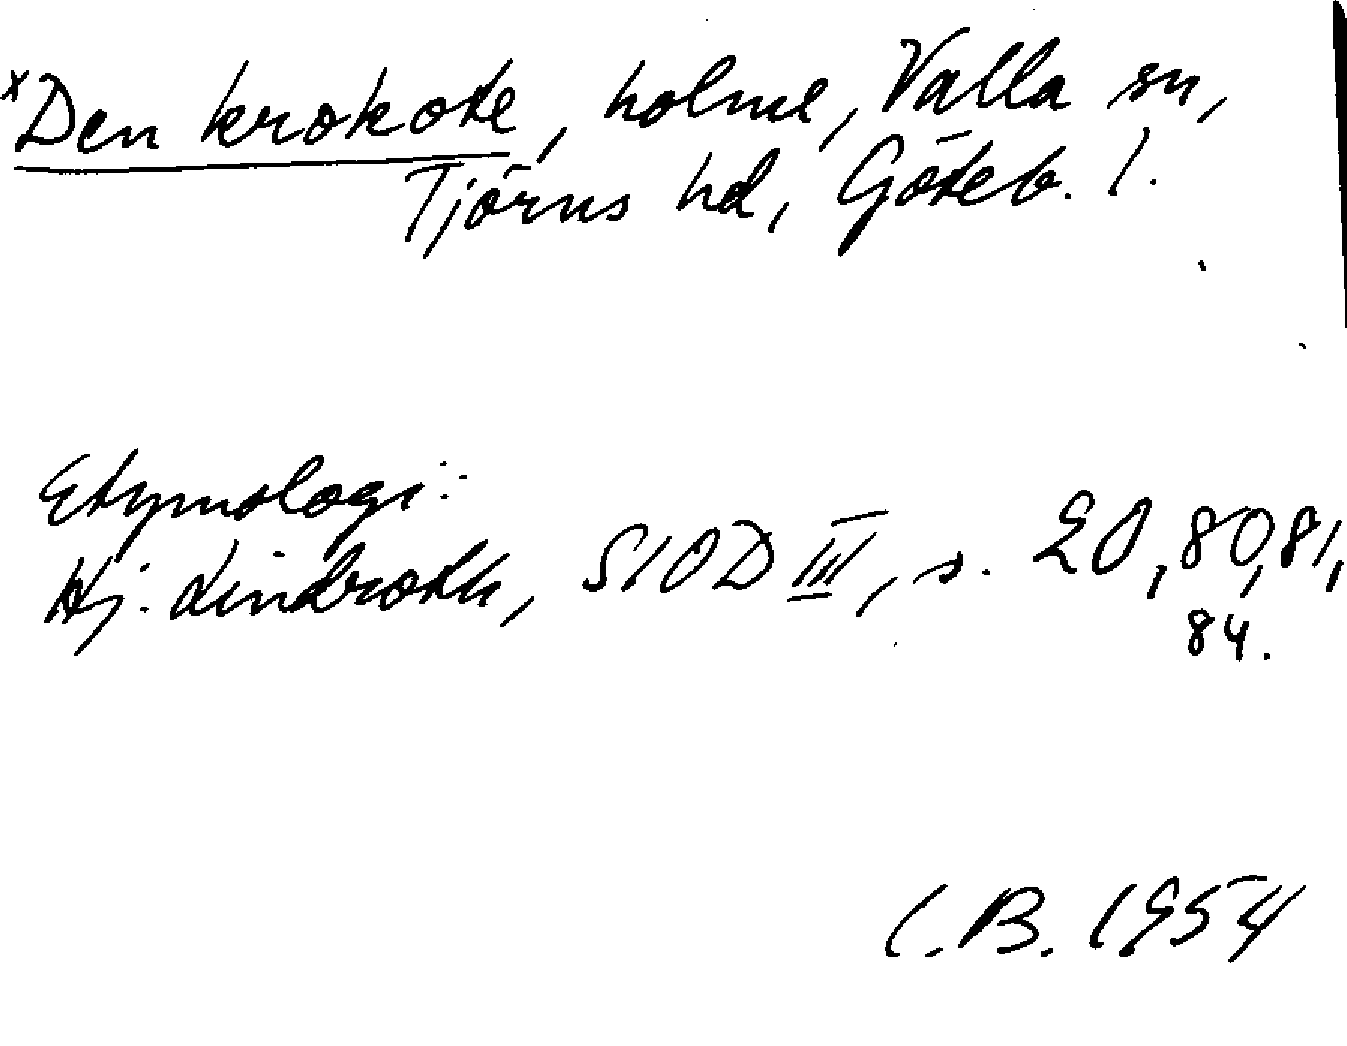 *Den krokote, holme, Valla sn,
Tjörns hd, Göteb. l.
Etymologi:
Hj. Lindroth, SIOD III, s. 20, 80, 81,
84.
C.B. 1954